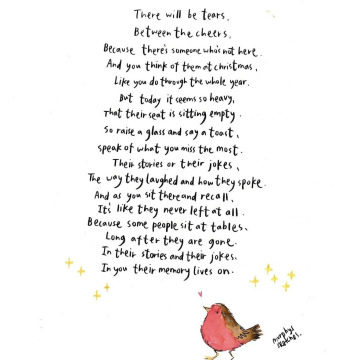 There will be tears,
Between the cheers,
Because there's someone who's not here.
And you think of them at christmas,
Like you do through the whole year.
But today it seems so heavy,
That their seat is sitting empty.
So raise a glass and say a toast,
speak of what you miss the most.
Their stories or their jokes,
The way they laughed and how they spoke.
And as you sit there and recall,
It's like they never left at all.
Because some people sit at tables,
Long after they are gone.
In their stories and their jokes.
In you their memory lives on.